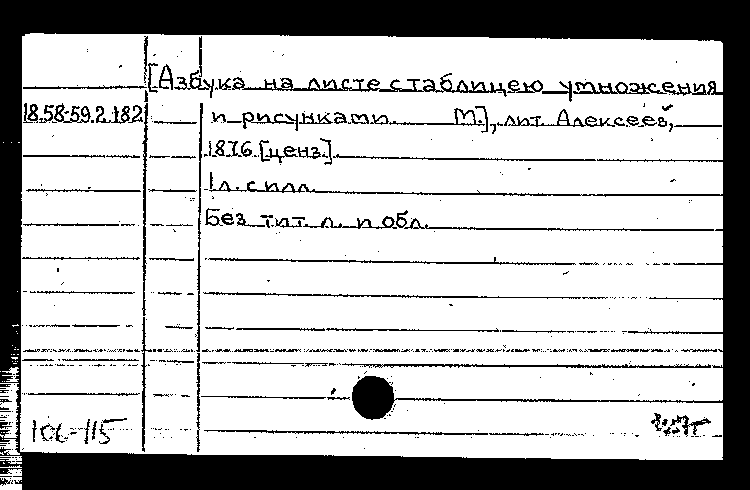 [Азбука на листе с таблицею умножения
18.58-59.2.182 и рисунками. М.], лит. Алексеев,
1876 [ценз.].
1 л. с илл.
Без тит. л. и обл.
106-115